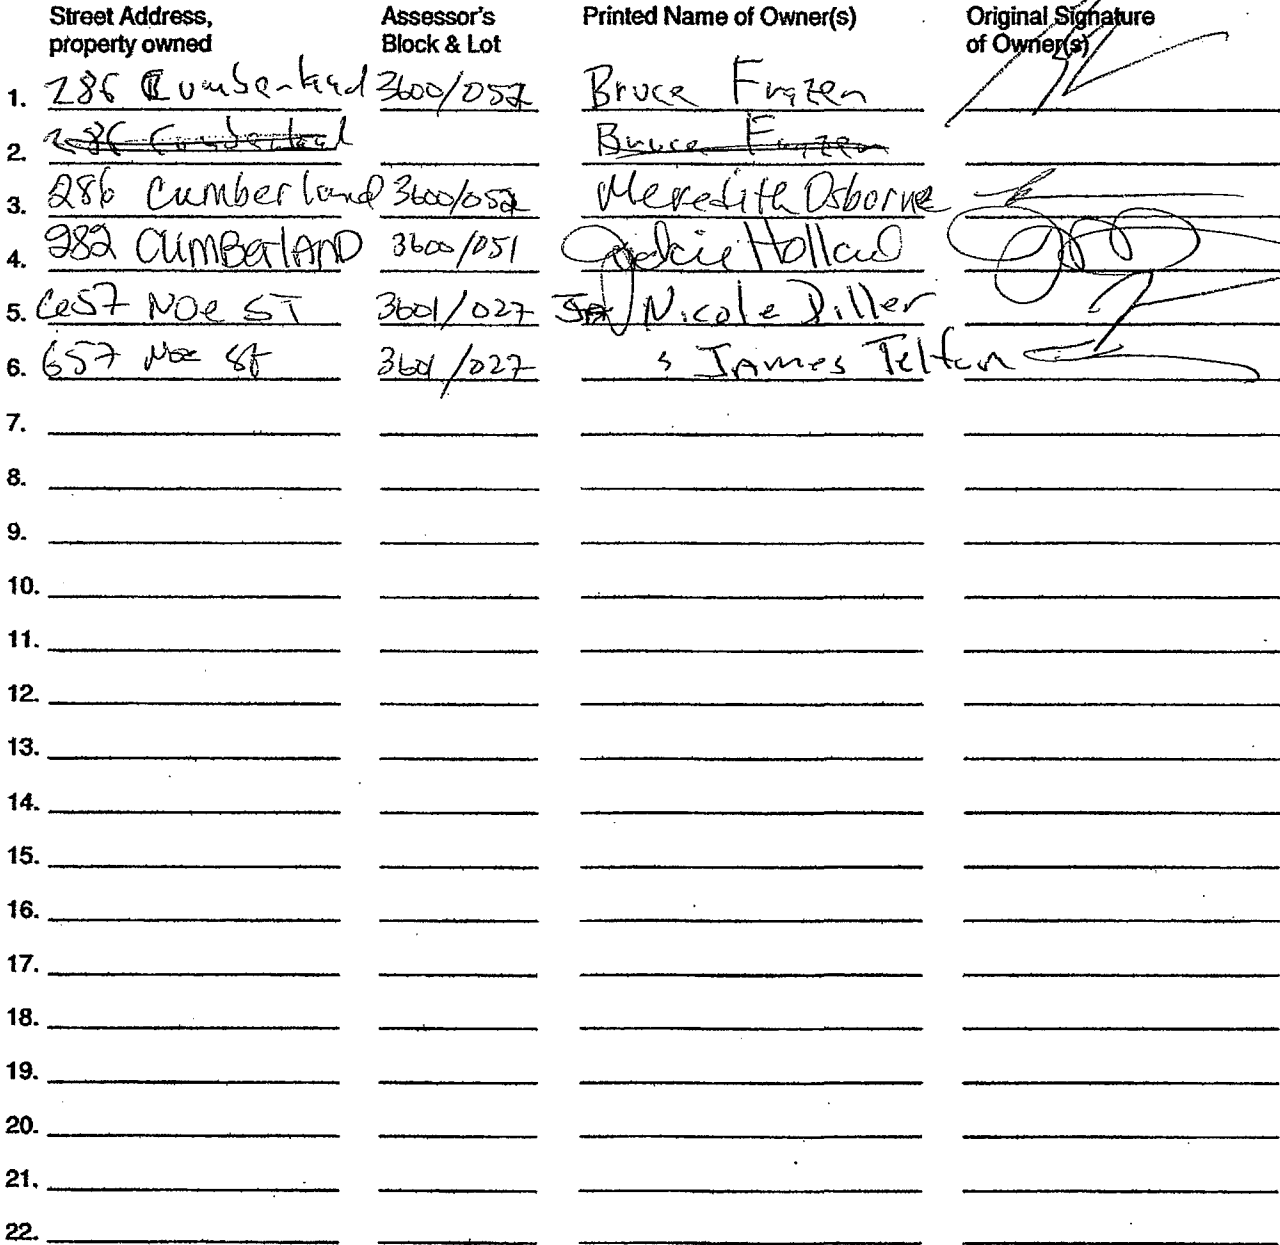 Street Address, property owned Assessor's Block & Lot Printed Name of Owner(s) Original Signature of Owner(s)
1. 286 Cumberland 3600/052 Bruce Frazen
2. 286 Cumberland Bruce Frazen
3. 286 Cumberland 3600/052 Meredith Osborne
4. 282 CUMBERLAND 3600/051 Jackie Holland
5. 657 NOE ST 3601/027 Nicole Diller
6. 657 Noe St 3601/027 JAmes Telfan
7.
8.
9.
10.
11.
12.
13.
14.
15.
16.
17.
18.
19.
20.
21.
22.